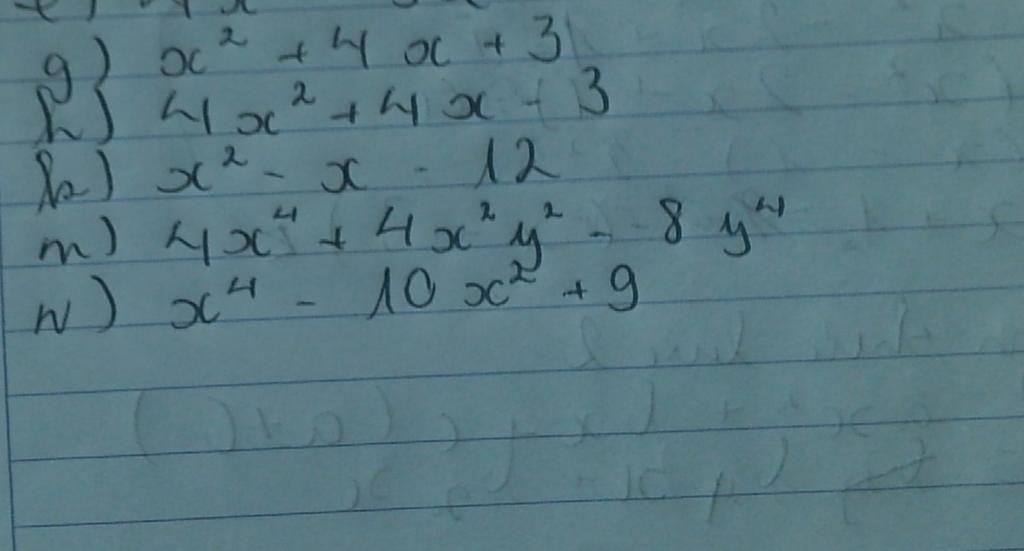 g) x² + 4x + 3
h) 4x² + 4x - 3
k) x² - x - 12
m) 4x⁴ + 4x²y² - 8y⁴
n) x⁴ - 10x² + 9